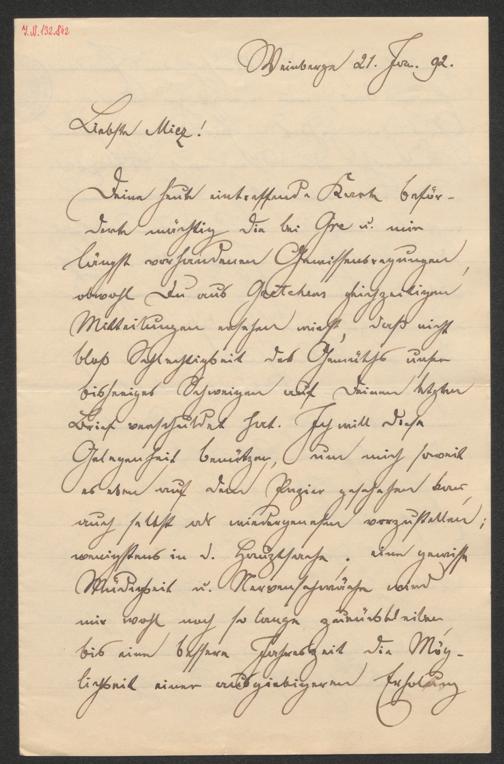 I.N. 132.842
Weinberge 21. Jan. 92.
Liebste Miez!
Deine heute eintreffende Karte beför-
derte mächtig die bei Gre u. mir
längst vorhandenen Gewissensregungen,
obwohl Du aus Gretchens gleichzeitigen
Mitteilungen ersehen wirst, daß nicht
bloß Schlechtigkeit des Gemüths unser
bisheriges Schweigen auf Deinen letzten
Brief verschuldet hat. Ich will diese
Gelegenheit benützen, um mich soweit
es eben auf dem Papier geschehen kann,
auch selbst als wiedergenesen vorzustellen;
wenigstens in d. Hauptsache, eine gewisse
Müdigkeit u. Nervenschwäche wird
mir wohl noch so lange zurückbleiben,
bis eine bessere Jahreszeit die Mög-
lichkeit einer ausgiebigeren Erholung